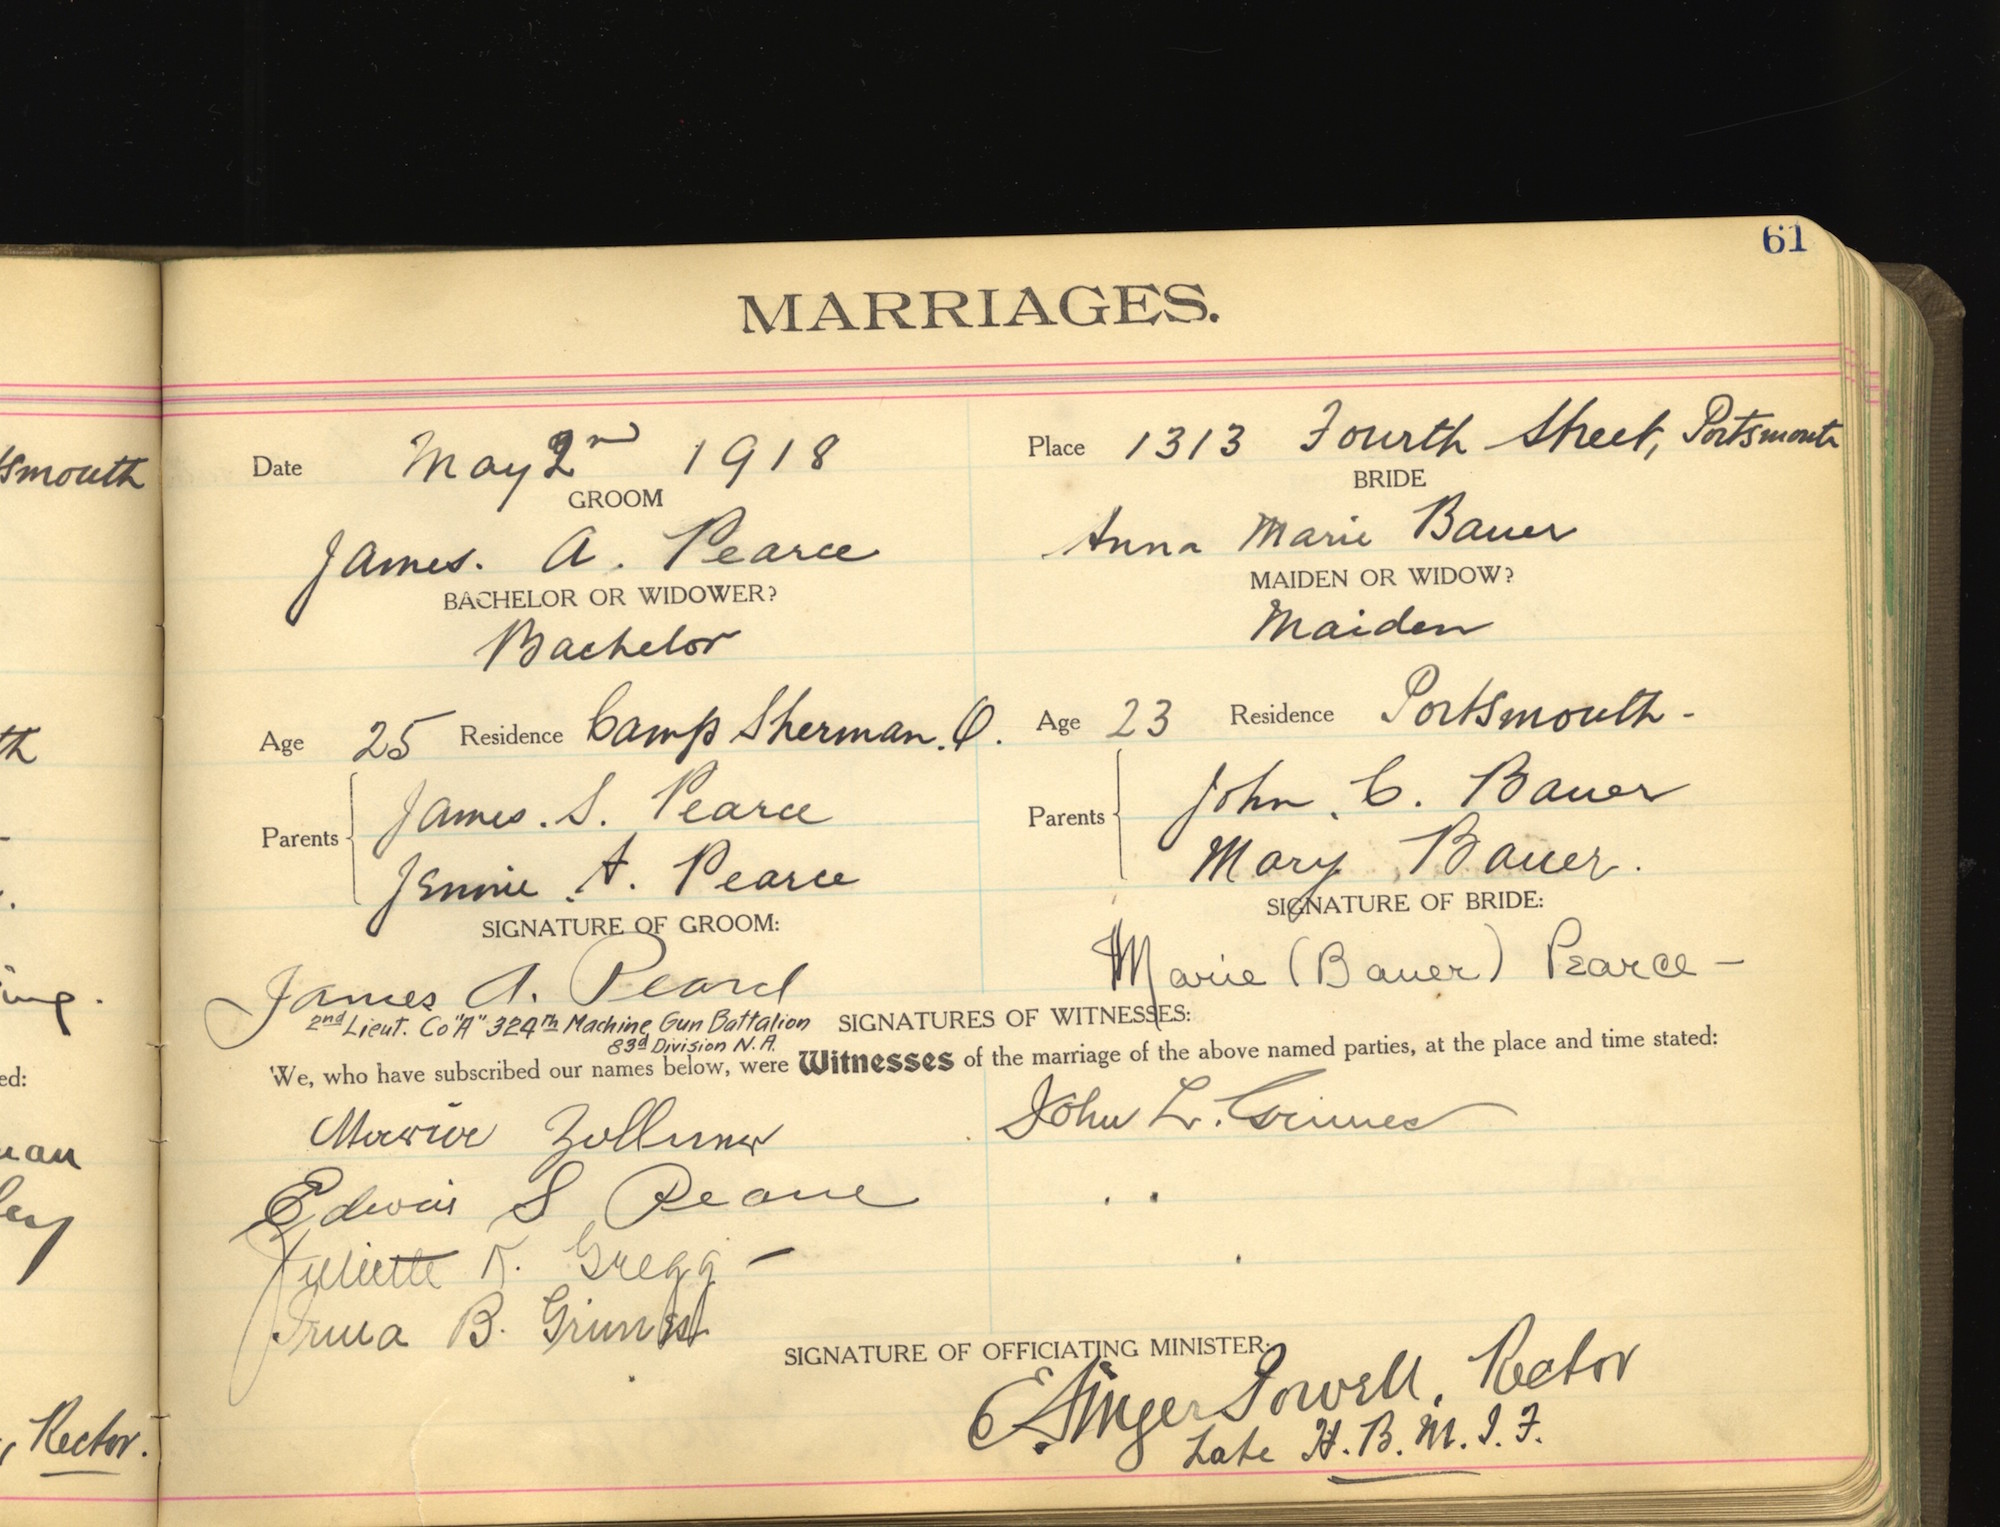 61
MARRIAGES.
smouth
th
ed:
Rector.
Date May 2nd 1918
Place 1313 Fourth Street, Portsmouth
GROOM
BRIDE
James. A. Pearce
Anna Marie Bauer
BACHELOR OR WIDOWER?
MAIDEN OR WIDOW?
Bachelor
Maiden
Age 25 Residence Camp Sherman. O.
Age 23 Residence Portsmouth-
Parents
James. S. Pearce
Jennie A. Pearce
Parents
John. C. Bauer
Mary Bauer.
SIGNATURE OF GROOM:
SIGNATURE OF BRIDE:
James A. Pearce
Marie (Bauer) Pearce-
2nd Lieut. Co "A" 324th Machine Gun Battalion
83d Division N.A.
SIGNATURES OF WITNESSES:
We, who have subscribed our names below, were Witnesses of the marriage of the above named parties, at the place and time stated:
John L. Grimes
Edwin S Pearce
Juliette K. Gregg-
Irma B. Grimes
SIGNATURE OF OFFICIATING MINISTER:
E. Ainger Powell, Rector
Late H.B.M.I.F.